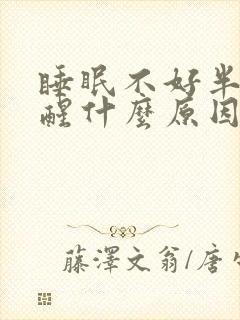 睡眠不好半
醒什麼原因
藤澤文翁/唐